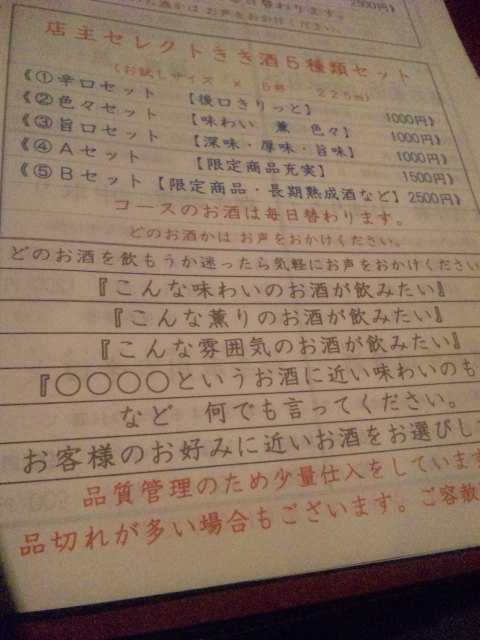 2500円》
店主セレクトきき酒５種類セット
(お試しサイズ × ５杯 ２２５ml)
《①辛口セット 【後口きりっと】 1000円》
《②色々セット 【味わい 薫 色々】 1000円》
《③旨口セット 【深味・厚味・旨味】 1000円》
《④Ａセット 【限定商品充実】 1500円》
《⑤Ｂセット【限定商品・長期熟成酒など】2500円》
コースのお酒は毎日替わります。
どのお酒かは お声をおかけください。
どのお酒を飲もうか迷ったら気軽にお声をおかけください
『こんな味わいのお酒が飲みたい』
『こんな薫りのお酒が飲みたい』
『こんな雰囲気のお酒が飲みたい』
『〇〇〇〇というお酒に近い味わいのも
など 何でも言ってください。
お客様のお好みに近いお酒をお選びし
品質管理のため少量仕入をしています
品切れが多い場合もございます。ご容赦